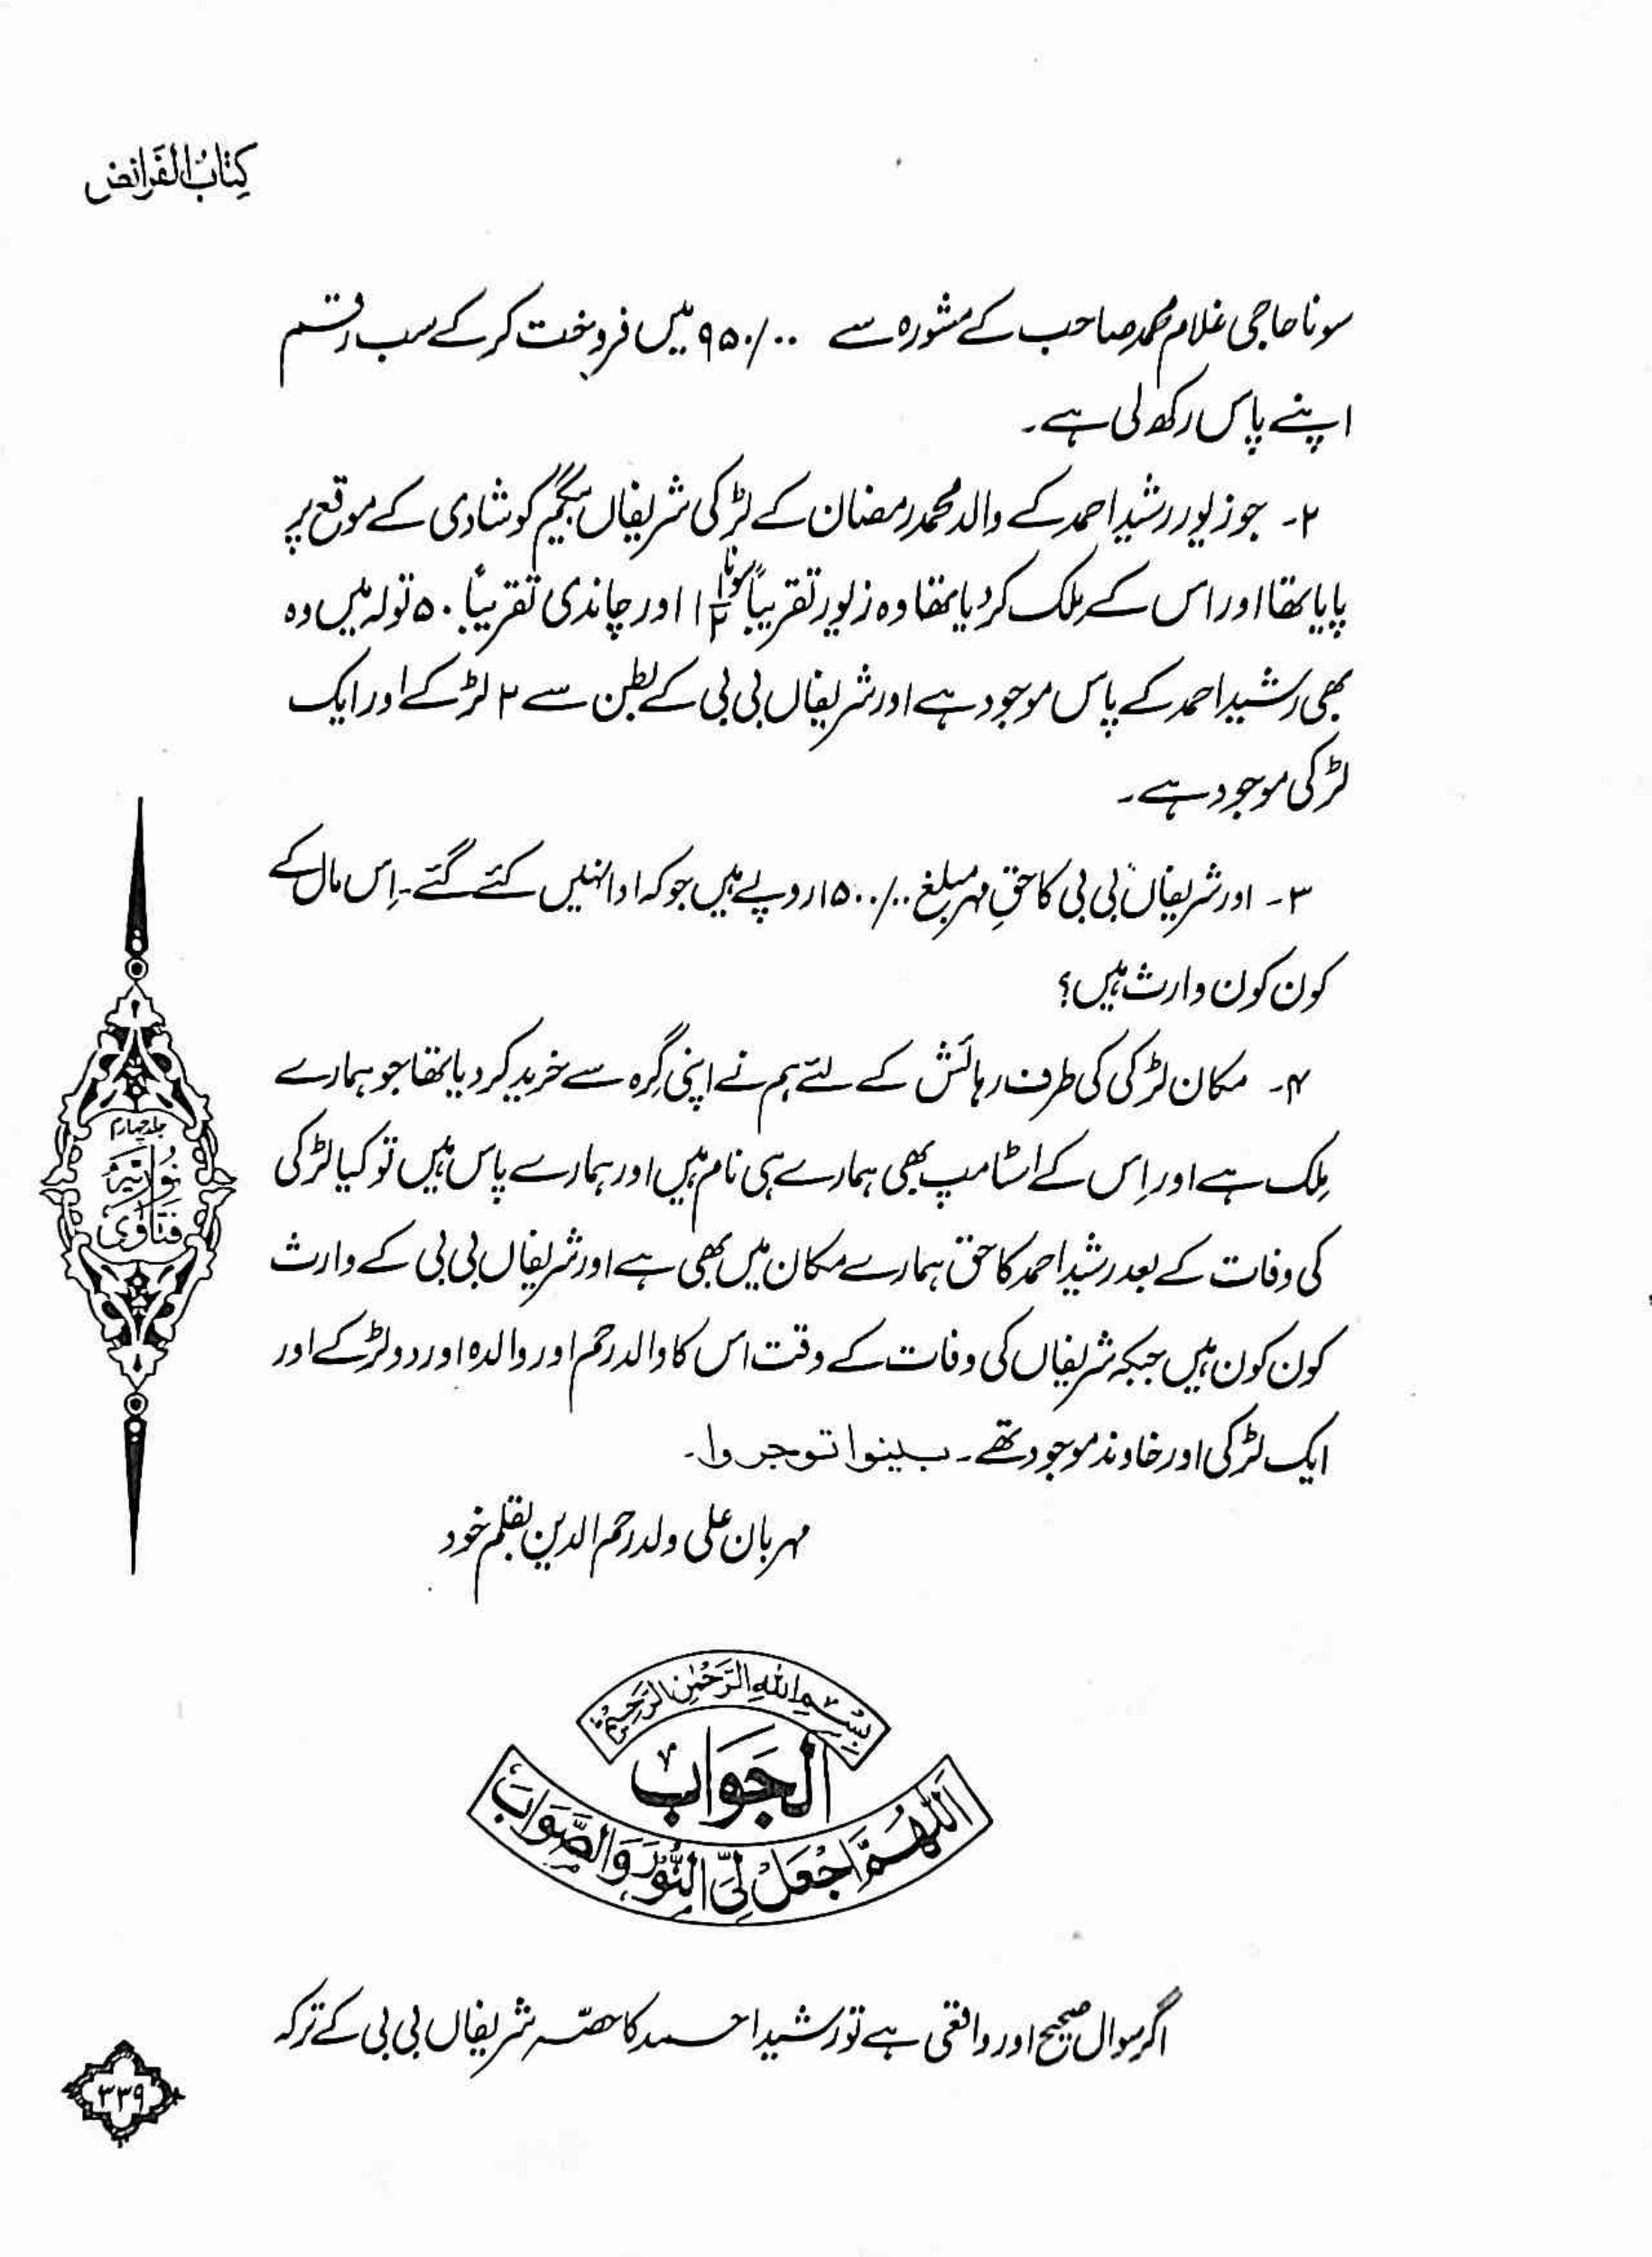 کِتَابُ الفَرَائض
سونا حاجی غلام محمد صاحب کے مشورہ سے ۹۵۰/۰۰ میں فروخت کرکے سب رقم
اپنے پاس رکھ لی ہے۔
۲۔ جو زیور رشید احمد کے والد محمد رمضان کے لڑکی شریفاں بیگم کو شادی کے موقع پر
پایا تھا اور اس کے ملک کر دیا تھا وہ زیور تقریباً سونا ۱ ۱/۲ اور چاندی تقریباً ۵۰ تولہ میں وہ
بھی رشید احمد کے پاس موجود ہے اور شریفاں بی بی کے بطن سے ۲ لڑکے اور ایک
لڑکی موجود ہے۔
۳۔ اور شریفاں بی بی کا حقِ مہر مبلغ ۱۵۰۰/۰۰ روپے ہیں جو کہ ادا نہیں کئے گئے۔ اِس مال کے
کون کون وارث ہیں؟
۴۔ مکان لڑکی کی طرف رہائش کے لئے ہم نے اپنی گِرہ سے خرید کر دیا تھا جو ہمارے
مِلک ہے اور اِس کے اسٹامپ بھی ہمارے ہی نام ہیں اور ہمارے پاس ہیں تو کیا لڑکی
کی وفات کے بعد رشید احمد کا حق ہمارے مکان میں بھی ہے اور شریفاں بی بی کے وارث
کون کون ہیں جبکہ شریفاں کی وفات کے وقت اس کا والد رحم اور والدہ اور دو لڑکے اور
ایک لڑکی اور خاوند موجود تھے۔ بینوا توجروا۔
مہربان علی ولد رحم الدین بقلم خود
جلد چہارم
نُورِیَّہ
فتاویٰ
بِسْمِ اللهِ الرَّحْمٰنِ الرَّحِيْمِ
اَلجَوَاب
اَللّٰهُمَّ اجْعَلْ لِيَ النُّوْرَ وَالصَّوَابَ
اگر سوال صحیح اور واقعی ہے تو رشید احمد کا حصّہ شریفاں بی بی کے ترکہ
۳۳۹